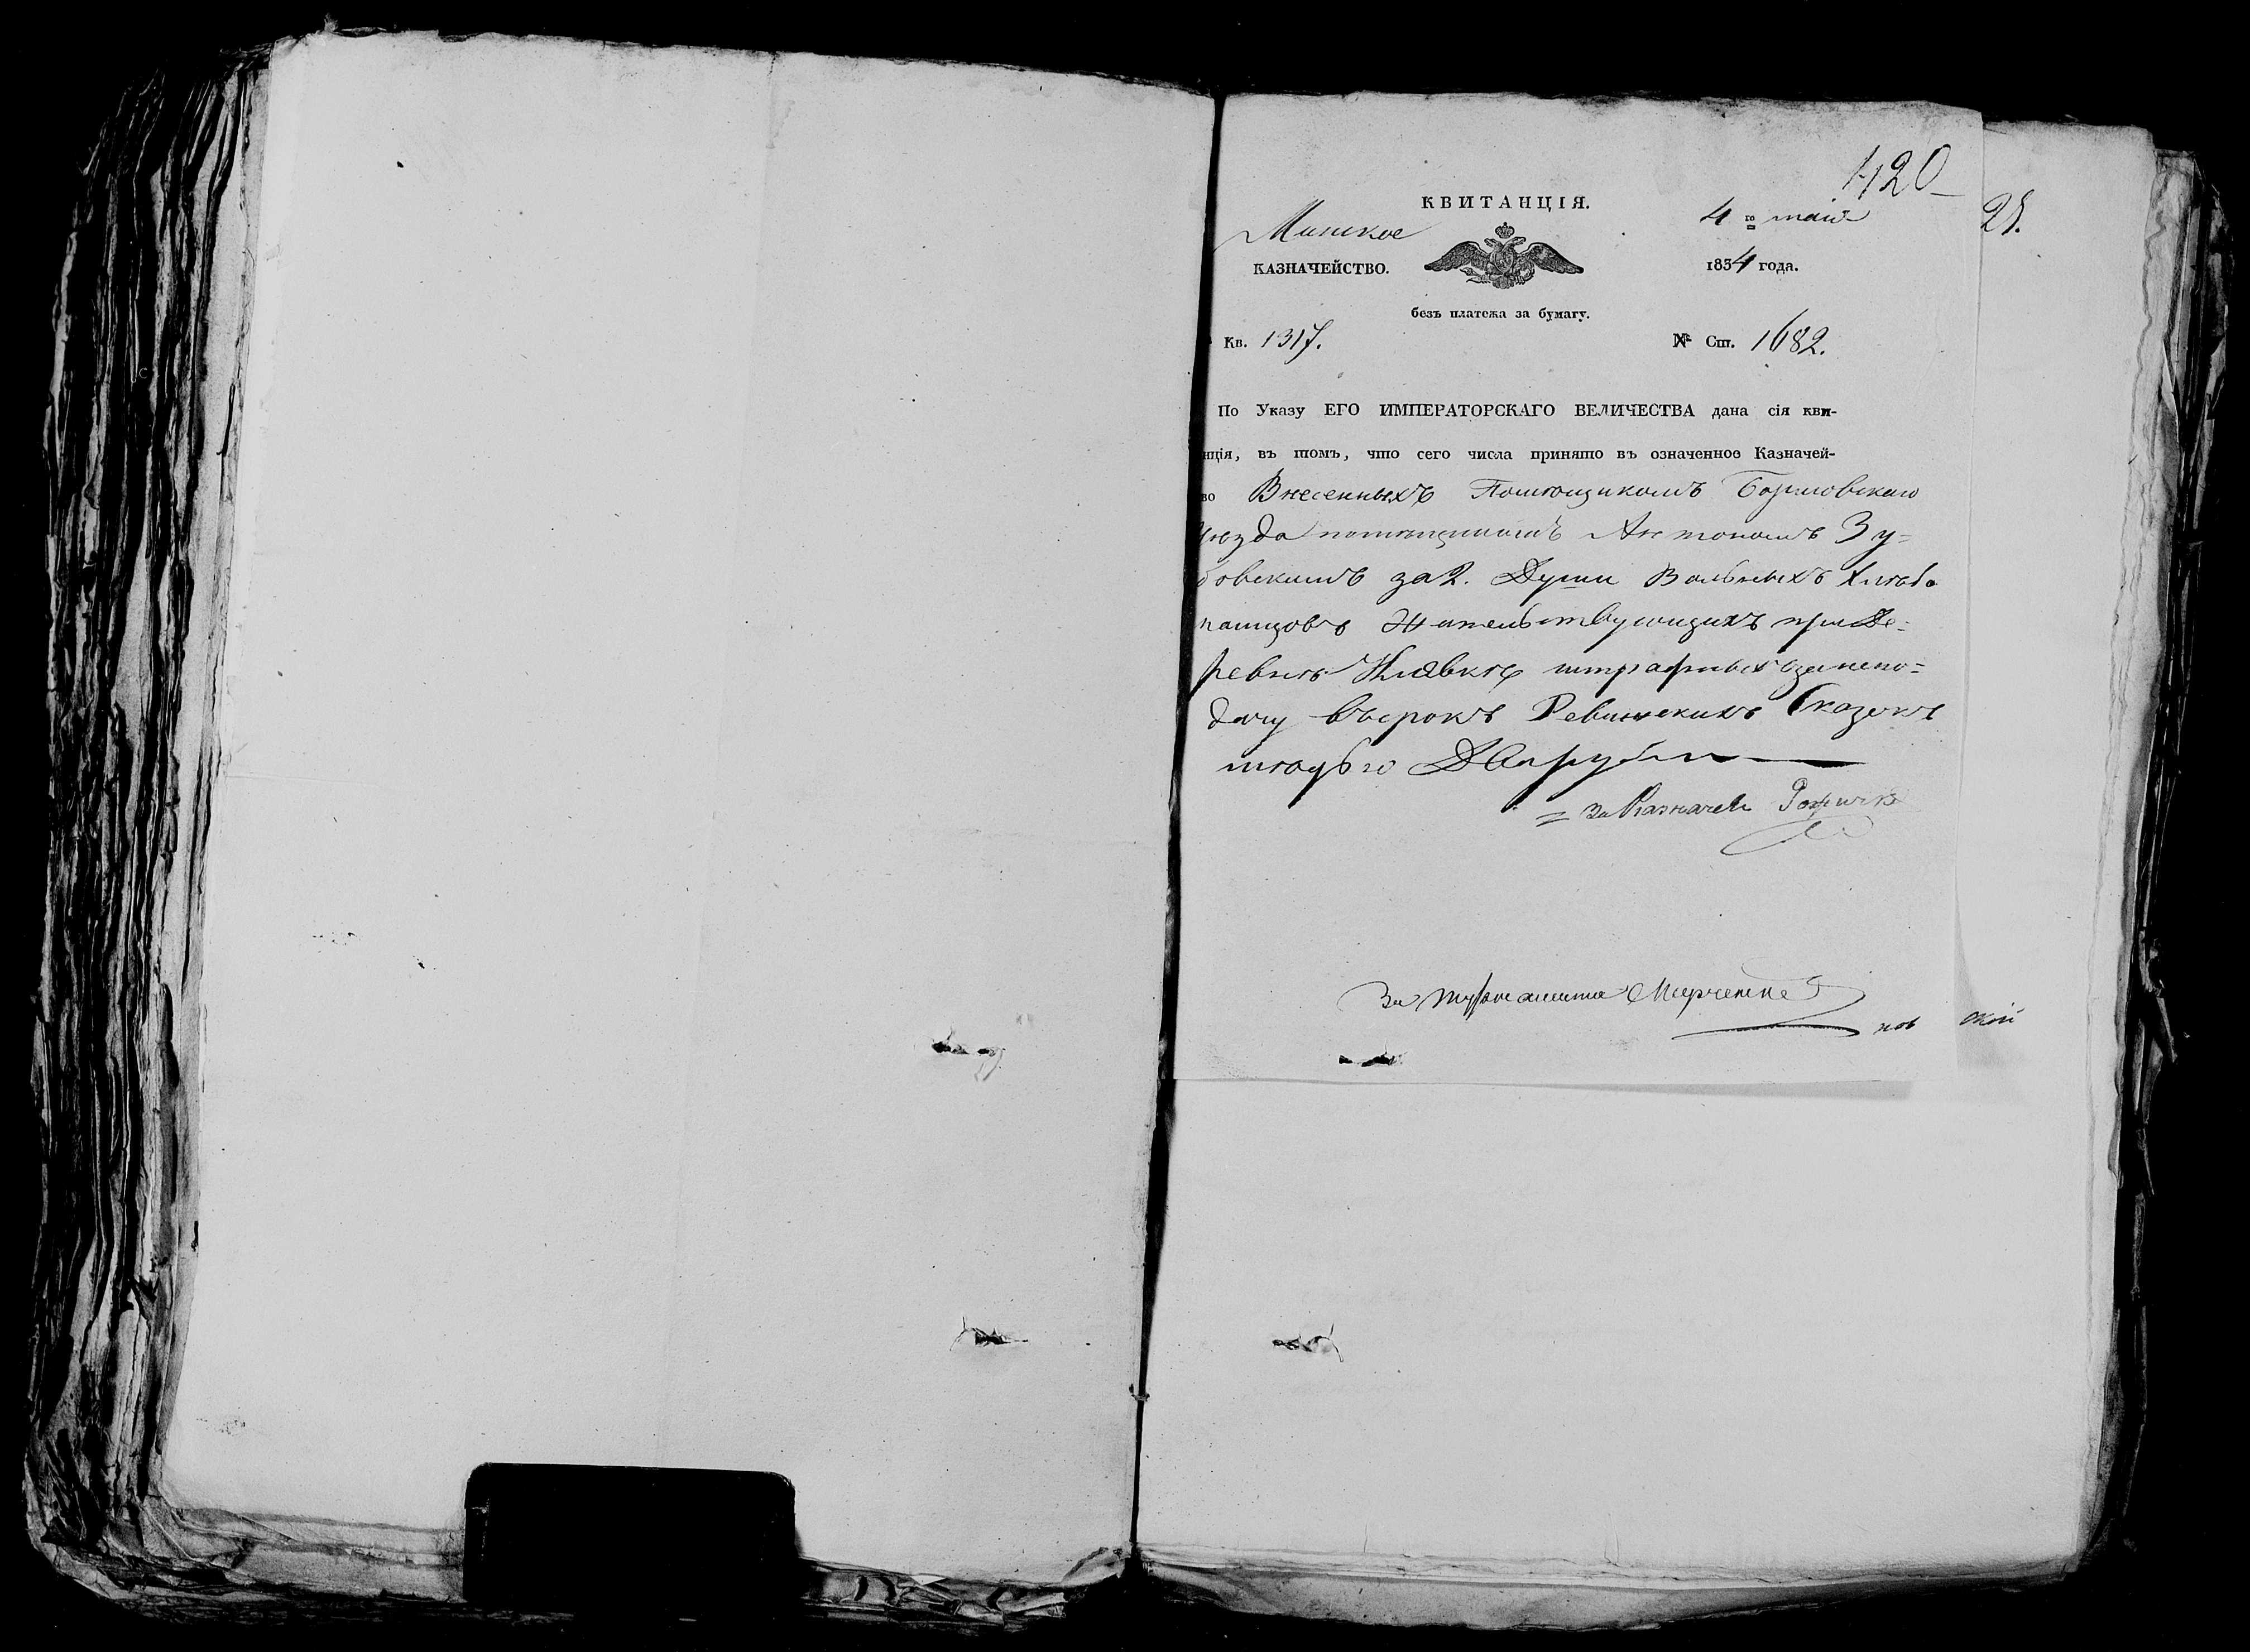 420
КВИТАНЦІЯ.
4го маія
25.
Минское
КАЗНАЧЕЙСТВО.
1834 года.
безъ платежа за бумагу.
Кв. 1317.
№ Ст. 1682.
По Указу ЕГО ИМПЕРАТОРСКАГО ВЕЛИЧЕСТВА дана сія кви-
нція, въ томъ, что сего числа принято въ означенное Казначей-
во Внесенныхъ Помѣщикомъ Борисовскаго
уѣзда помѣщикомъ Антономъ Зу-
бовскимъ за 2. Души Вольныхъ Хлѣбо
пашцовъ Жительствующихъ при Де-
ревнѣ штрафныхъ за непо-
дачу въ срокъ Ревизскихъ Сказокъ
Два рубли
За Казначея
За
нов ской